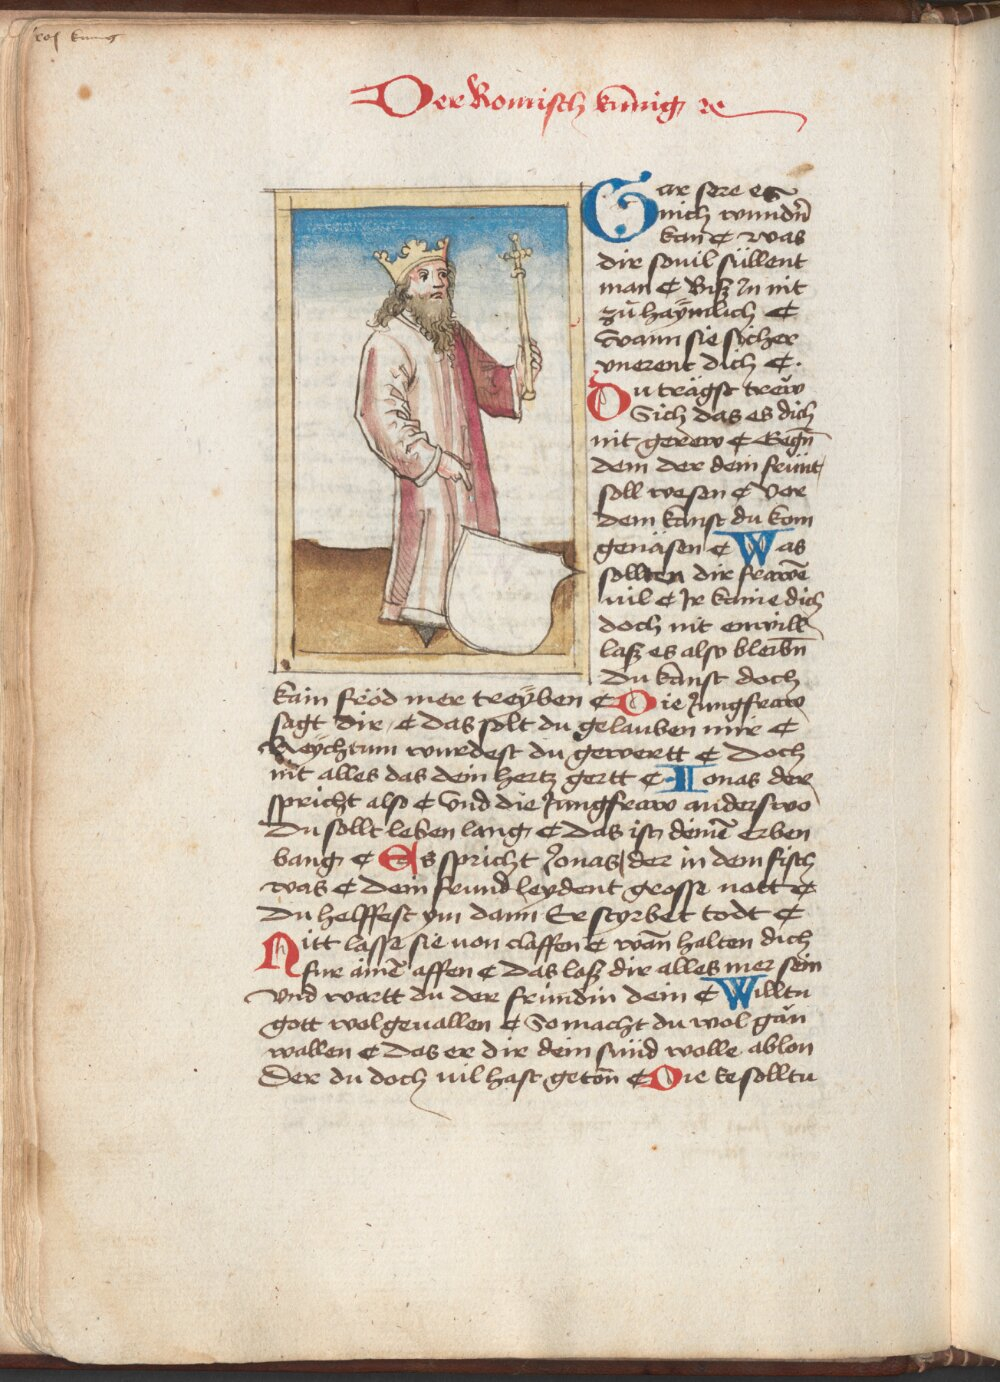 Röm kunig
Der Romisch kūnig ꝛc
Gar sere es
mich wundn̄
kan ₵ was
dir souil sŭllent
man ₵ Bisz In nit
zŭ haÿmlich ₵
Wann sie sicher
vnerent dich ₵
Du trägst trew
Sich das es dich
nit gerew ₵ Regn̄
dem der dein frŭnt
soll wesen ₵ Vor
dem kanst du kom
genäsen ₵ Was
sollten dir frawē
uil ₵ Ir kaine dich
doch nit enwill
lasz es also bleibn̄
Du kanst doch
kain fröd mer treÿben ₵ Die Jungfraw
sagt dir ₵ das solt du gelauben mir ₵
Reÿchtum wurdest du gewertt ₵ Doch
nit alles das dein hertz gertt ₵ Ionas der
spricht also ₵ Vnd die Jungfraw anderswo
Du sollt leben lang ₵ Das ist deinē erben
bang ₵ Es spricht Jonas der in dem fisch
was ₵ Dein frund leydent grosse nott ₵
Du helffest ym dann Er styrbet todt ₵
Nitt lasse sie von claffen ₵ wān halten dich
fur ainē affen ₵ Das lasz dir alles mer sein
Vnd wartt du der frindin dein ₵ Willtu
gott wolgeuallen ₵ So macht du wol gän
wallen ₵ Das er dir dein sŭnd wolle ablon
Der du doch uil hast geton̄ ₵ Die ke solltu